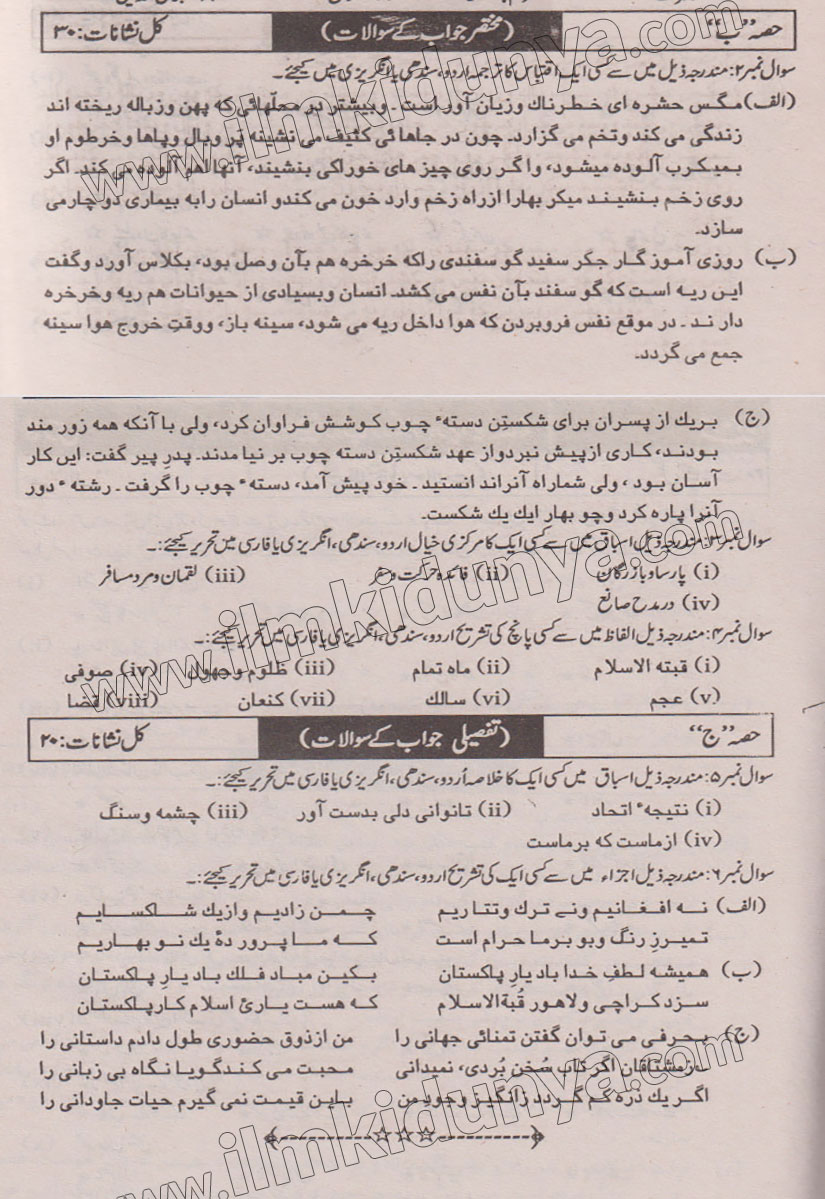 حصہ ”ب“ (مختصر جواب کے سوالات) کل نشانات: ۳۰
سوال نمبر۲: مندرجہ ذیل میں سے کسی ایک اقتباس کا ترجمہ اردو، سندھی یا انگریزی میں کیجئے۔
(الف) مگس حشره ای خطرناك وزیان آور است۔ وبیشتر در محلّهائی که پهن وزباله ریخته اند
زندگی می کند وتخم می گزارد۔ چون در جاها ئی کثیف می نشینه پر وبال وپاها وخرطوم او
بمیکرب آلوده میشود، وا گر روی چیز های خوراکی بنشیند، آنها اهو آلوده می کند۔ اگر
روی زخم بنشیند میکر بهارا ازراه زخم وارد خون می کندو انسان رابه بیماری دو چارمی
سازد۔
(ب) روزی آموز گار جکر سفید گو سفندی راکه خرخره هم بآن وصل بود، بکلاس آورد وگفت
ایں ریه است که گو سفند بآن نفس می کشد۔ انسان وبسیادی از حیوانات هم ریه وخرخره
دار ند ۔ در موقع نفس فروبردن که هوا داخل ریه می شود، سینه باز، ووقتِ خروج هوا سینه
جمع می گردد۔
(ج) بریك از پسران برای شکستِن دسته ٔ چوب کوشش فراوان کرد، ولی با آنکه همه زور مند
بودند، کاری ازپیش نبردواز عهد شکستِن دسته چوب بر نیا مدند۔ پدرِ پیر گفت: ایں کار
آسان بود ، ولی شماراه آنراند انستید ۔ خود پیش آمد، دسته ٔ چوب را گرفت ۔ رشته ٔ دور
آنرا پاره کرد وچو بهار ایك یك شکست۔
سوال نمبر۳: مندرجہ ذیل اسباق میں سے کسی ایک کا مرکزی خیال اردو، سندھی، انگریزی یا فارسی میں تحریر کیجئے:۔
(i) پارسا و بازرگان (ii) فائدہ حرکت و سفر (iii) لقمان و مرد مسافر
(iv) در مدح صانع
سوال نمبر۴: مندرجہ ذیل الفاظ میں سے کسی پانچ کی تشریح اردو، سندھی، انگریزی یا فارسی میں تحریر کیجئے:۔
(i) قبته الاسلام (ii) ماه تمام (iii) ظلوم وجهول (iv) صوفی
(v) عجم (vi) سالك (vii) کنعان (viii) قضا
حصہ ”ج“ (تفصیلی جواب کے سوالات) کل نشانات: ۲۰
سوال نمبر۵: مندرجہ ذیل اسباق میں کسی ایک کا خلاصہ اُردو، سندھی، انگریزی یا فارسی میں تحریر کیجئے:۔
(i) نتیجه ٔ اتحاد (ii) تانوانی دلی بدست آور (iii) چشمه وسنگ
(iv) ازماست که برماست
سوال نمبر۶: مندرجہ ذیل اجزاء میں سے کسی ایک کی تشریح اردو، سندھی، انگریزی یا فارسی میں تحریر کیجئے:۔
(الف) نه افغانیم ونے ترك وتتا ریم چمن زادیم وازیك شاکسایم
تمیرزِ رنگ وبو برما حرام است که ما پرور دهٔ یك نو بهاریم
(ب) همیشه لطفِ خدا باد یارِ پاکستان بکین مباد فلك باد یارِ پاکستان
سزد کراچی ولاهور قُبة الاسلام که هست یاریٔ اسلام کارِ پاکستان
(ج) بحرفی می توان گفتن تمنائی جهانی را من ازذوق حضوری طول دادم داستانی را
زمشتاقان اگر کاب سُخن بُردی، نمیدانی محبت می کندگویا نگاه بی زبانی را
اگر یك ذره کم گردد زانگیز وجود من باین قیمت نمی گیرم حیات جاودانی را
www.ilmkidunya.com
www.ilmkidunya.com
www.ilmkidunya.com